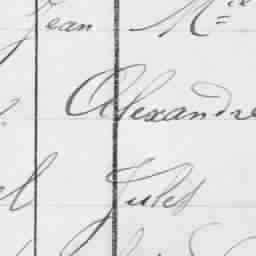 Jean Mie
Alexandre
Jules